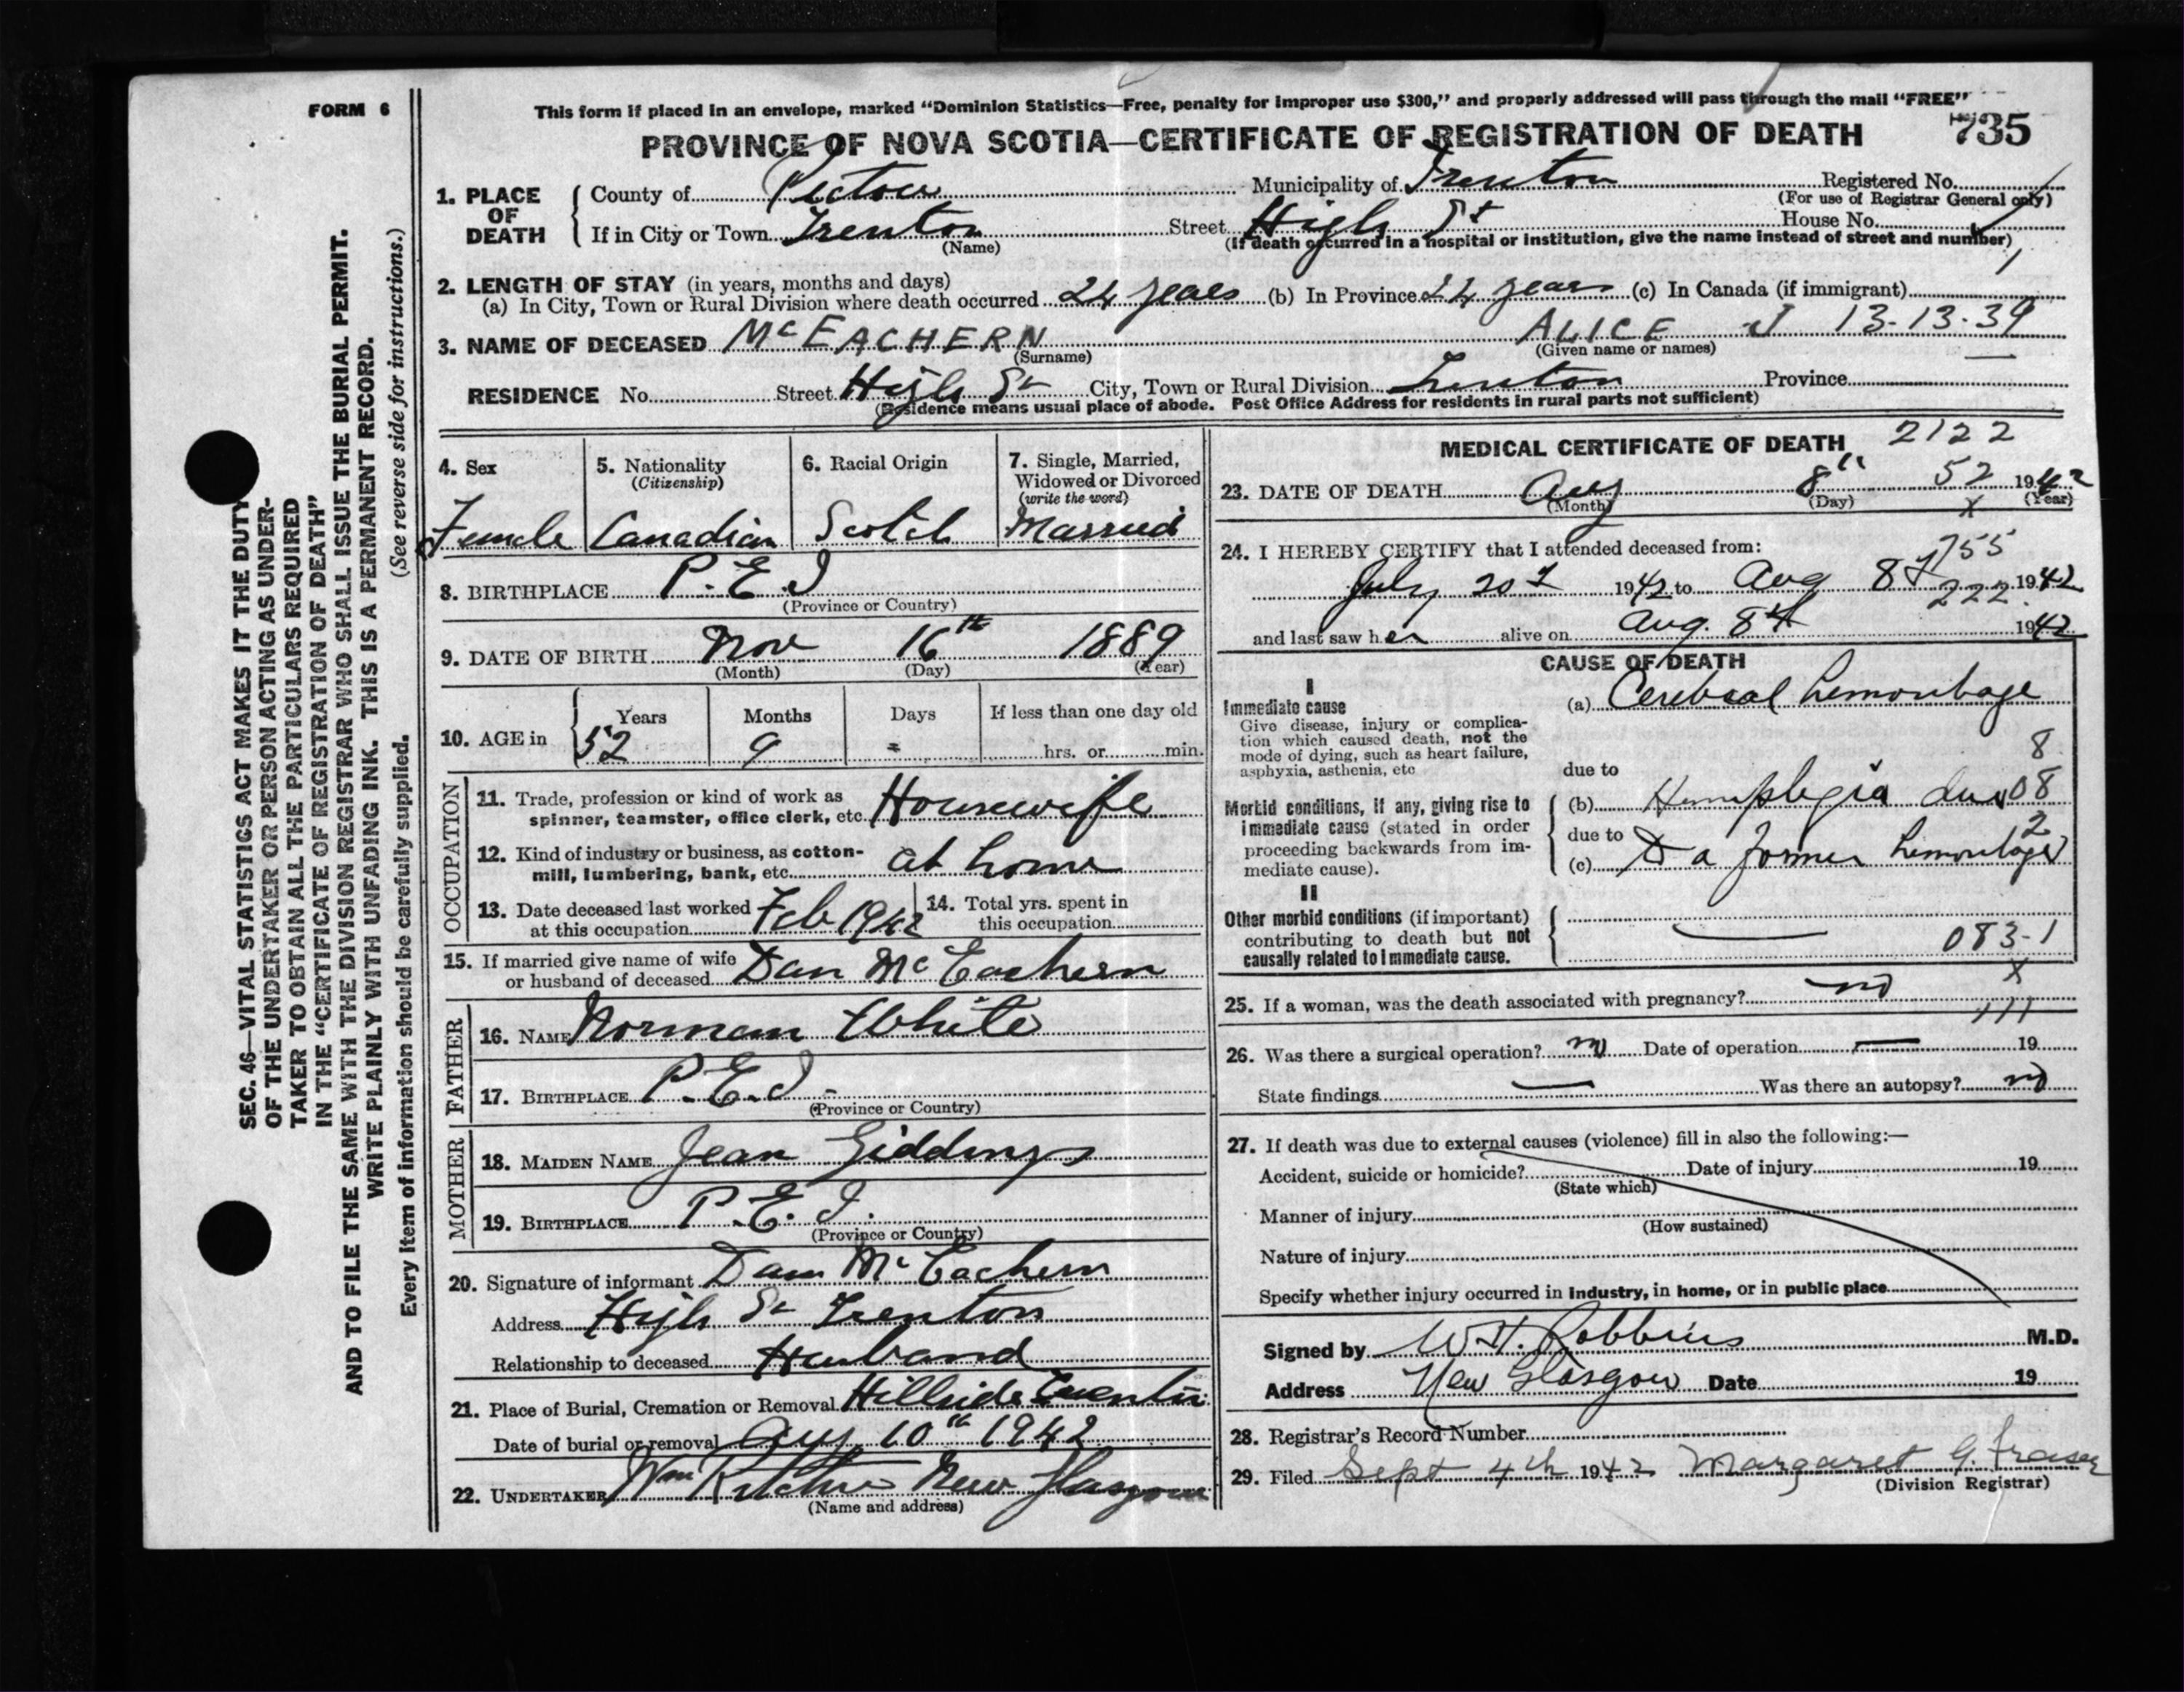 FORM 6
This form if placed in an envelope, marked "Dominion Statistics—Free, penalty for improper use $300," and properly addressed will pass through the mail "FREE"
PROVINCE OF NOVA SCOTIA—CERTIFICATE OF REGISTRATION OF DEATH 735
1. PLACE OF DEATH { County of Pictou Municipality of Trenton Registered No.
(For use of Registrar General only)
If in City or Town Trenton Street High St House No.
(Name) (If death occurred in a hospital or institution, give the name instead of street and number)
2. LENGTH OF STAY (in years, months and days)
(a) In City, Town or Rural Division where death occurred 24 years (b) In Province 24 years (c) In Canada (if immigrant)
3. NAME OF DECEASED McEACHERN ALICE J 13-13-39
(Surname) (Given name or names)
RESIDENCE No. Street High St City, Town or Rural Division Trenton Province
(Residence means usual place of abode. Post Office Address for residents in rural parts not sufficient)
4. Sex 5. Nationality (Citizenship) 6. Racial Origin 7. Single, Married, Widowed or Divorced (write the word)
Female Canadian Scotch Married
8. BIRTHPLACE P.E.I
(Province or Country)
9. DATE OF BIRTH Nov 16th 1889
(Month) (Day) (Year)
10. AGE in { Years Months Days If less than one day old
52 9 - hrs. or min.
OCCUPATION
11. Trade, profession or kind of work as spinner, teamster, office clerk, etc. Housewife
12. Kind of industry or business, as cotton-mill, lumbering, bank, etc. at home
13. Date deceased last worked at this occupation Feb 1942 14. Total yrs. spent in this occupation
15. If married give name of wife or husband of deceased Dan McEachern
FATHER
16. NAME Norman White
17. BIRTHPLACE P.E.I.
(Province or Country)
MOTHER
18. MAIDEN NAME Jean Giddings
19. BIRTHPLACE P.E.I.
(Province or Country)
20. Signature of informant Dan McEachern
Address High St Trenton
Relationship to deceased Husband
21. Place of Burial, Cremation or Removal Hillside
Date of burial or removal Aug 10th 1942
22. UNDERTAKER Wm Ritchie New Glasgow
(Name and address)
MEDICAL CERTIFICATE OF DEATH 2122
23. DATE OF DEATH Aug 8th 52 1942
(Month) (Day) (Year)
X
24. I HEREBY CERTIFY that I attended deceased from:
755
July 20 1942 to Aug 8 1942
222
and last saw her alive on Aug. 8th 1942
CAUSE OF DEATH
I
Immediate cause (a) Cerebral hemorrhage
Give disease, injury or complication which caused death, not the mode of dying, such as heart failure, asphyxia, asthenia, etc
8
due to
08
Morbid conditions, if any, giving rise to immediate cause (stated in order proceeding backwards from immediate cause). { (b) Hemiplegia due
2
due to
(c) to a former hemorrhage
II
Other morbid conditions (if important) contributing to death but not causally related to immediate cause. {
083-1
X
25. If a woman, was the death associated with pregnancy? no
111
26. Was there a surgical operation? no Date of operation — 19
State findings — Was there an autopsy? no
27. If death was due to external causes (violence) fill in also the following:—
Accident, suicide or homicide? Date of injury 19
(State which)
Manner of injury
(How sustained)
Nature of injury
Specify whether injury occurred in industry, in home, or in public place
Signed by W.H. Robbins M.D.
Address New Glasgow Date 19
28. Registrar's Record Number
29. Filed Sept 4th 1942 Margaret G. Fraser
(Division Registrar)
SEC. 46—VITAL STATISTICS ACT MAKES IT THE DUTY
OF THE UNDERTAKER OR PERSON ACTING AS UNDER-
TAKER TO OBTAIN ALL THE PARTICULARS REQUIRED
IN THE "CERTIFICATE OF REGISTRATION OF DEATH"
AND TO FILE THE SAME WITH THE DIVISION REGISTRAR WHO SHALL ISSUE THE BURIAL PERMIT.
WRITE PLAINLY WITH UNFADING INK. THIS IS A PERMANENT RECORD.
Every item of information should be carefully supplied. (See reverse side for instructions.)